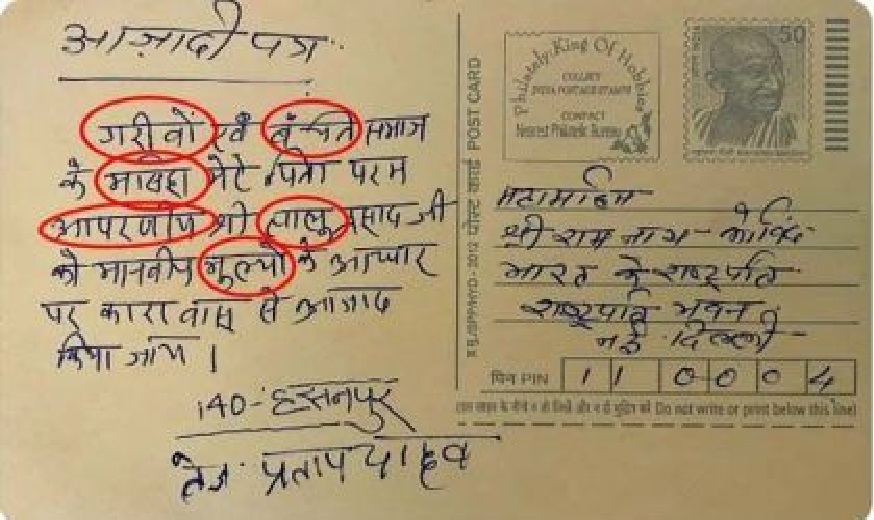 आज़ादी पत्र
गरीवों एवं वंचित समाज
के मासिहा मेरे पिता परम
आपरणीय श्री लालु प्रसाद जी
को मानवीय मुल्यों के आधार
पर कारा वास से आजाद
किया जाय ।
140-हसनपुर
तेज प्रताप यादव
पोस्ट कार्ड POST CARD
Philately: King Of Hobbies
COLLECT
INDIA POSTAGE STAMPS
CONTACT
Nearest Philatelic Bureau
50
महामहिम
श्री राम नाथ-कोविंद
भारत के राष्ट्रपति
राष्ट्रपति भवन
नई दिल्ली-
पिन PIN 110004
Do not write or print below this line)